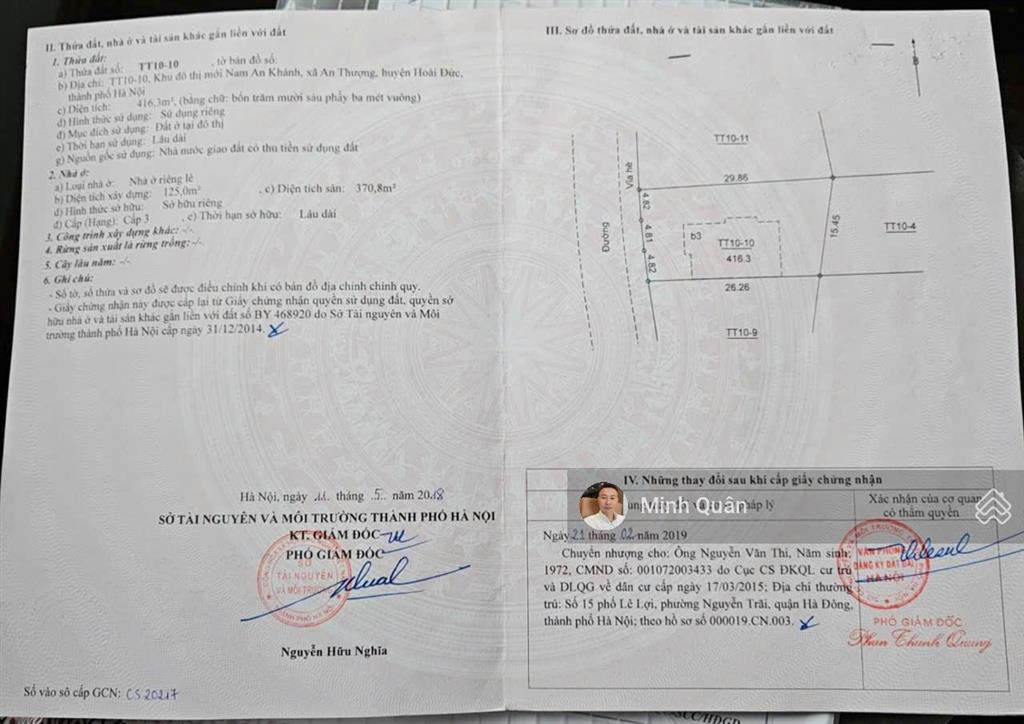 II. Thửa đất, nhà ở và tài sản khác gắn liền với đất
1. Thửa đất:
a) Thửa đất số: TT10-10 , tờ bản đồ số:
b) Địa chỉ: TT10-10, Khu đô thị mới Nam An Khánh, xã An Thượng, huyện Hoài Đức,
thành phố Hà Nội
c) Diện tích: 416,3m², (bằng chữ: bốn trăm mười sáu phẩy ba mét vuông)
d) Hình thức sử dụng: Sử dụng riêng
đ) Mục đích sử dụng: Đất ở tại đô thị
e) Thời hạn sử dụng: Lâu dài
g) Nguồn gốc sử dụng: Nhà nước giao đất có thu tiền sử dụng đất
2. Nhà ở:
a) Loại nhà ở: Nhà ở riêng lẻ
b) Diện tích xây dựng: 125,0m² , c) Diện tích sàn: 370,8m²
d) Hình thức sở hữu: Sở hữu riêng
đ) Cấp (Hạng): Cấp 3 , e) Thời hạn sở hữu: Lâu dài
3. Công trình xây dựng khác: -/-
4. Rừng sản xuất là rừng trồng: -/-
5. Cây lâu năm: -/-
6. Ghi chú:
- Số tờ, số thửa và sơ đồ sẽ được điều chỉnh khi có bản đồ địa chính chính quy.
- Giấy chứng nhận này được cấp lại từ Giấy chứng nhận quyền sử dụng đất, quyền sở
hữu nhà ở và tài sản khác gắn liền với đất số BY 468920 do Sở Tài nguyên và Môi
trường thành phố Hà Nội cấp ngày 31/12/2014.
Hà Nội, ngày 11 tháng 5 năm 2018
SỞ TÀI NGUYÊN VÀ MÔI TRƯỜNG THÀNH PHỐ HÀ NỘI
KT. GIÁM ĐỐC
PHÓ GIÁM ĐỐC
SỞ
TÀI NGUYÊN
VÀ MÔI TRƯỜNG
THÀNH PHỐ HÀ NỘI
Nguyễn Hữu Nghĩa
Số vào sổ cấp GCN: CS 20217
III. Sơ đồ thửa đất, nhà ở và tài sản khác gắn liền với đất
B
TT10-11
Vỉa hè
29.86
4.82
Đường
4.81
b3
TT10-10
416.3
15.45
TT10-4
4.82
26.26
TT10-9
IV. Những thay đổi sau khi cấp giấy chứng nhận
Minh Quân
pháp lý
Xác nhận của cơ quan
có thẩm quyền
Ngày 21 tháng 02 năm 2019
Chuyển nhượng cho: Ông Nguyễn Văn Thi, Năm sinh:
1972, CMND số: 001072003433 do Cục CS ĐKQL cư trú
và DLQG về dân cư cấp ngày 17/03/2015; Địa chỉ thường
trú: Số 15 phố Lê Lợi, phường Nguyễn Trãi, quận Hà Đông,
thành phố Hà Nội; theo hồ sơ số 000019.CN.003.
VĂN PHÒNG
ĐĂNG KÝ ĐẤT ĐAI
HÀ NỘI
PHÓ GIÁM ĐỐC
Phan Thanh Quang